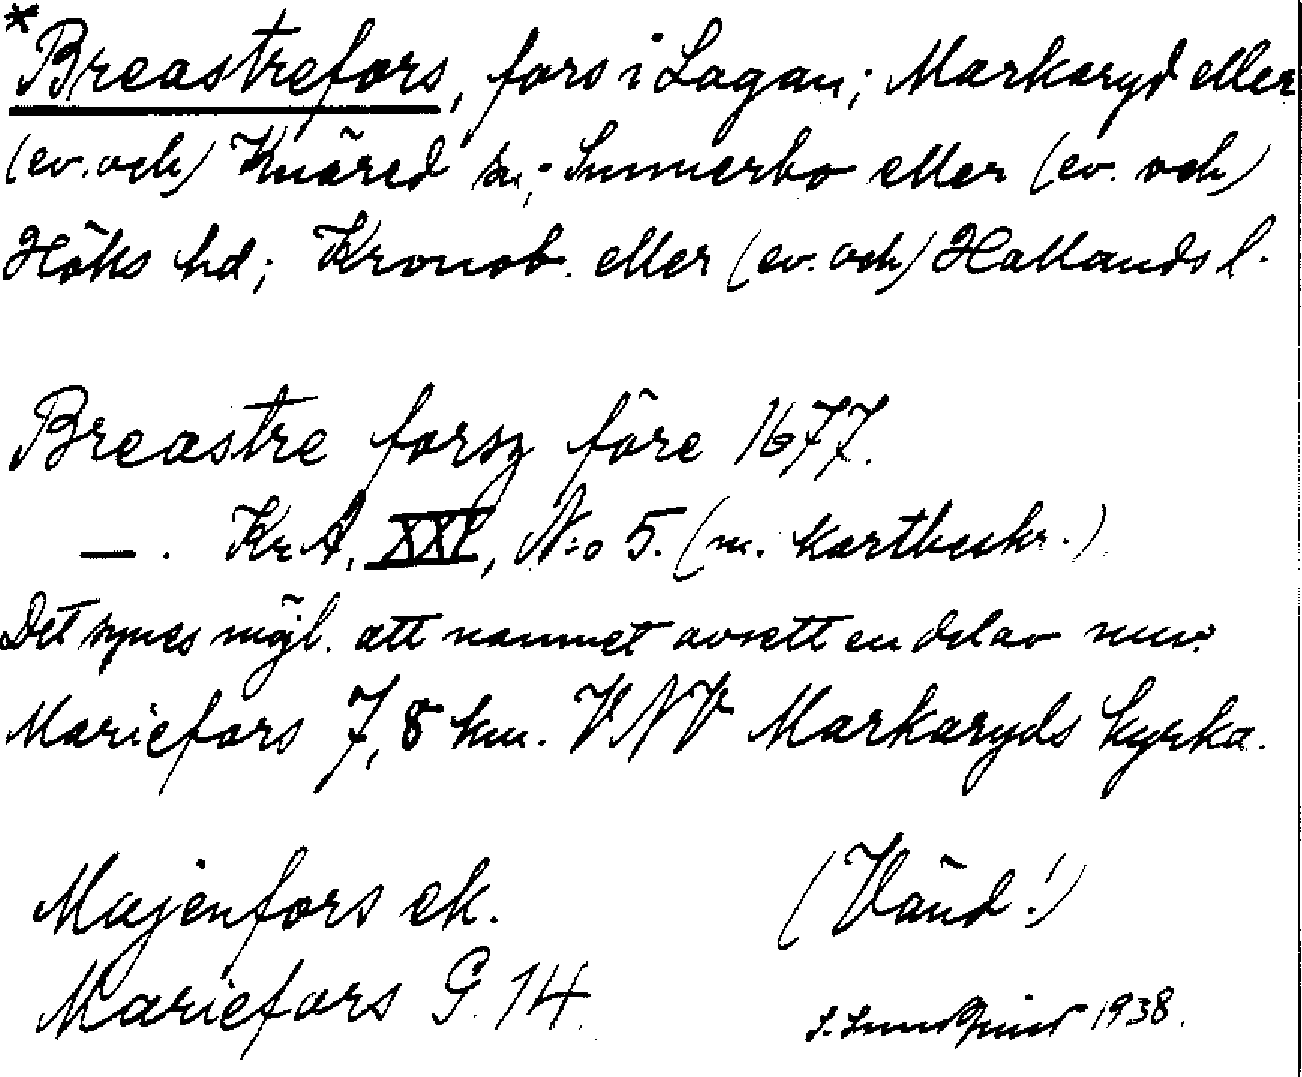 *Breastrefors, fors i Lagan; Markaryd eller
(ev. och) Knäred sn; Sunnerbo eller (ev. och)
Höks hd; Kronob. eller (ev. och) Hallands l.
Breastre forsz före 1677.
— . KrA, XXI, N:o 5. (m. kartbeskr.)
Det synes möjl. att namnet avsett en del av nuv.
Mariefors 7,8 km. VNV Markaryds kyrka.
Majenfors ek.
(Vänd!)
Mariefors G. 14.
1938.